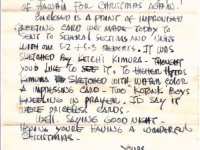 OF HAWAII FOR CHRISTMAS AGAIN!
ENCLOSED IS A PRINT OF IMPROVISED
GREETING CARD WE MADE TODAY TO
SENT TO SEVERAL SECTIONS AND
WITH OUR S-2 & S-3 REPORTS. IT WAS
SKETCHED BY KEICHI KIMURA - THOUGHT
YOU'D LIKE TO SEE IT. TO HIGHER
KIMURA SKETCHED WITH WATER COLOR
A IMPRESSING CARD - TWO KOTONK BOYS
KNEELING IN PRAYER. I'D SAY IT
WERE PRICELESS CARDS.
WELL - SAYING GOOD NIGHT -
HOPING YOU'RE HAVING A WONDERFUL
CHRISTMAS.
YOURS